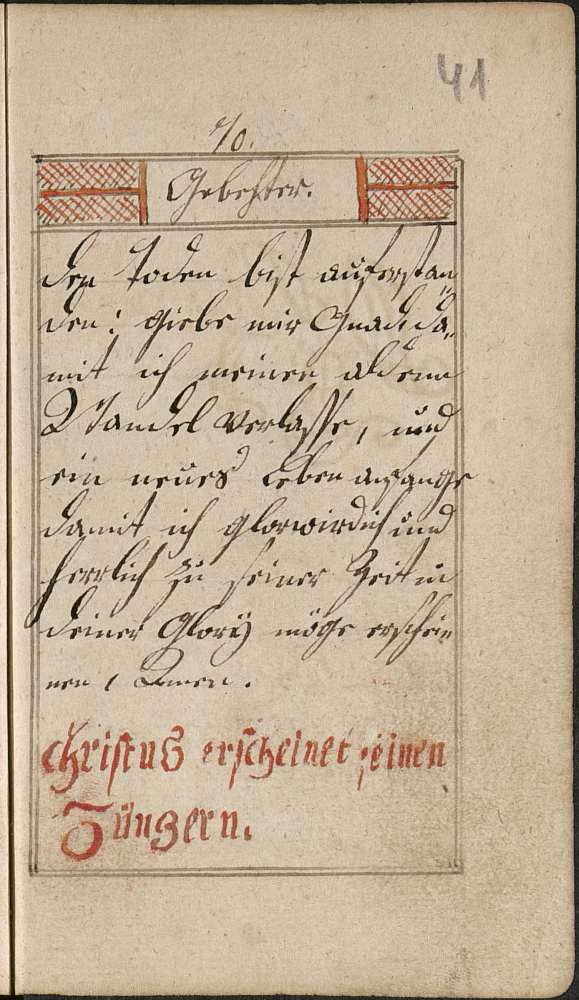 41
70.
Gebetter.
den Toden bist auferstan„
den: giebe mir Gnad, da„
mit ich meinen alden
Wandel verlasse, und
ein neues Leben anfange
damit ich glorwirdich und
herrlich zu seiner Zeit in
deiner Glory möge erschei„
nen, Amen.
Christus erscheinet seinen
Jüngern.